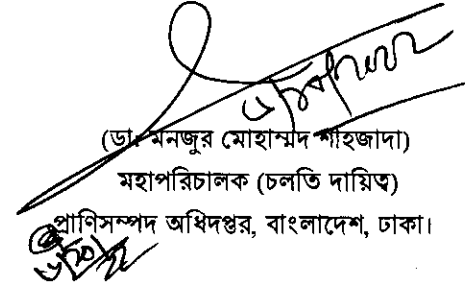 (ডা. মনজুর মোহাম্মদ শাহজাদা)
মহাপরিচালক (চলতি দায়িত্ব)
প্রাণিসম্পদ অধিদপ্তর, বাংলাদেশ, ঢাকা।